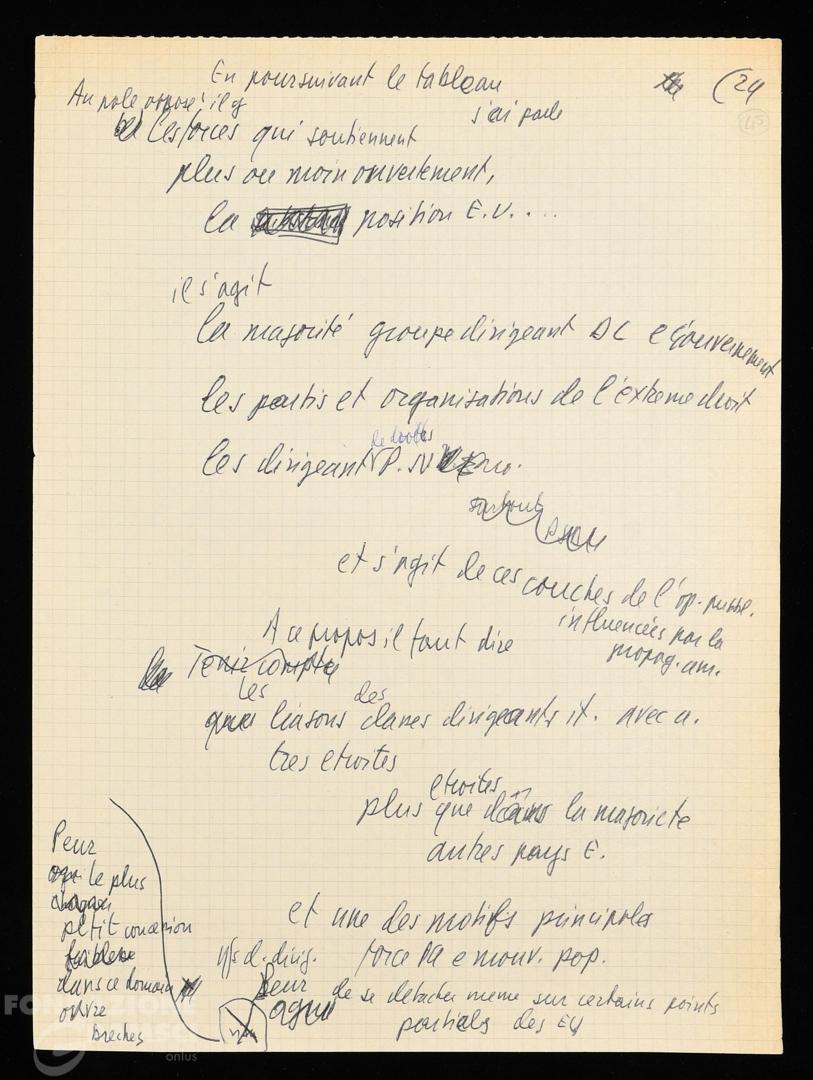 En poursuivant le tableau
(24
45
Au pole opposé il y
j'ai parlé
les forces qui soutiennent
plus ou moin ouvertement,
la position E.U. ...
il s'agit
la majorité groupe dirigeant DC e Gouvernement
les partis et organisations de l'extreme droit
de droites
les dirigeant P.SU
surtout
et s'agit de ces couches de l'op. pubbl.
influencées par la
propag. am.
A ce propos il faut dire
Tenir compte
les des
que liasons dirigeants it. avec a.
tres etroites
etroites
plus que dans la majoricte
autres pays E.
Peur
que le plus
petit concession
faiblesse
dans ce domain
ouvre
breches
et une des motifs principals
force PC e mouv. pop.
Peur de se detacher meme sur certains points
partials des EU
FONDAZIONE
onlus